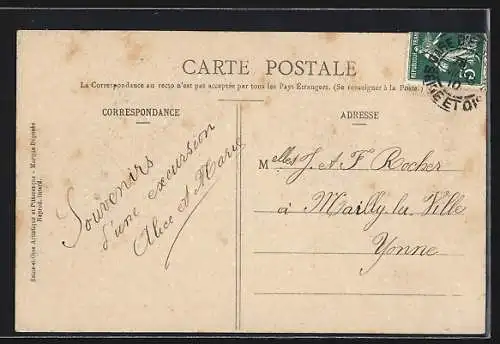 CARTE POSTALE
La Correspondance au recto n'est pas acceptée par tous les Pays Étrangers. (Se renseigner à la Poste.)
CORRESPONDANCE
ADRESSE
Souvenirs
d'une excursion
Alice et Marie
Melles J. et F. Rocher
à Mailly la Ville
Yonne
Seine-et-Oise Artistique et Pittoresque - Marque Déposée
Reprod. interd.
ET OISE